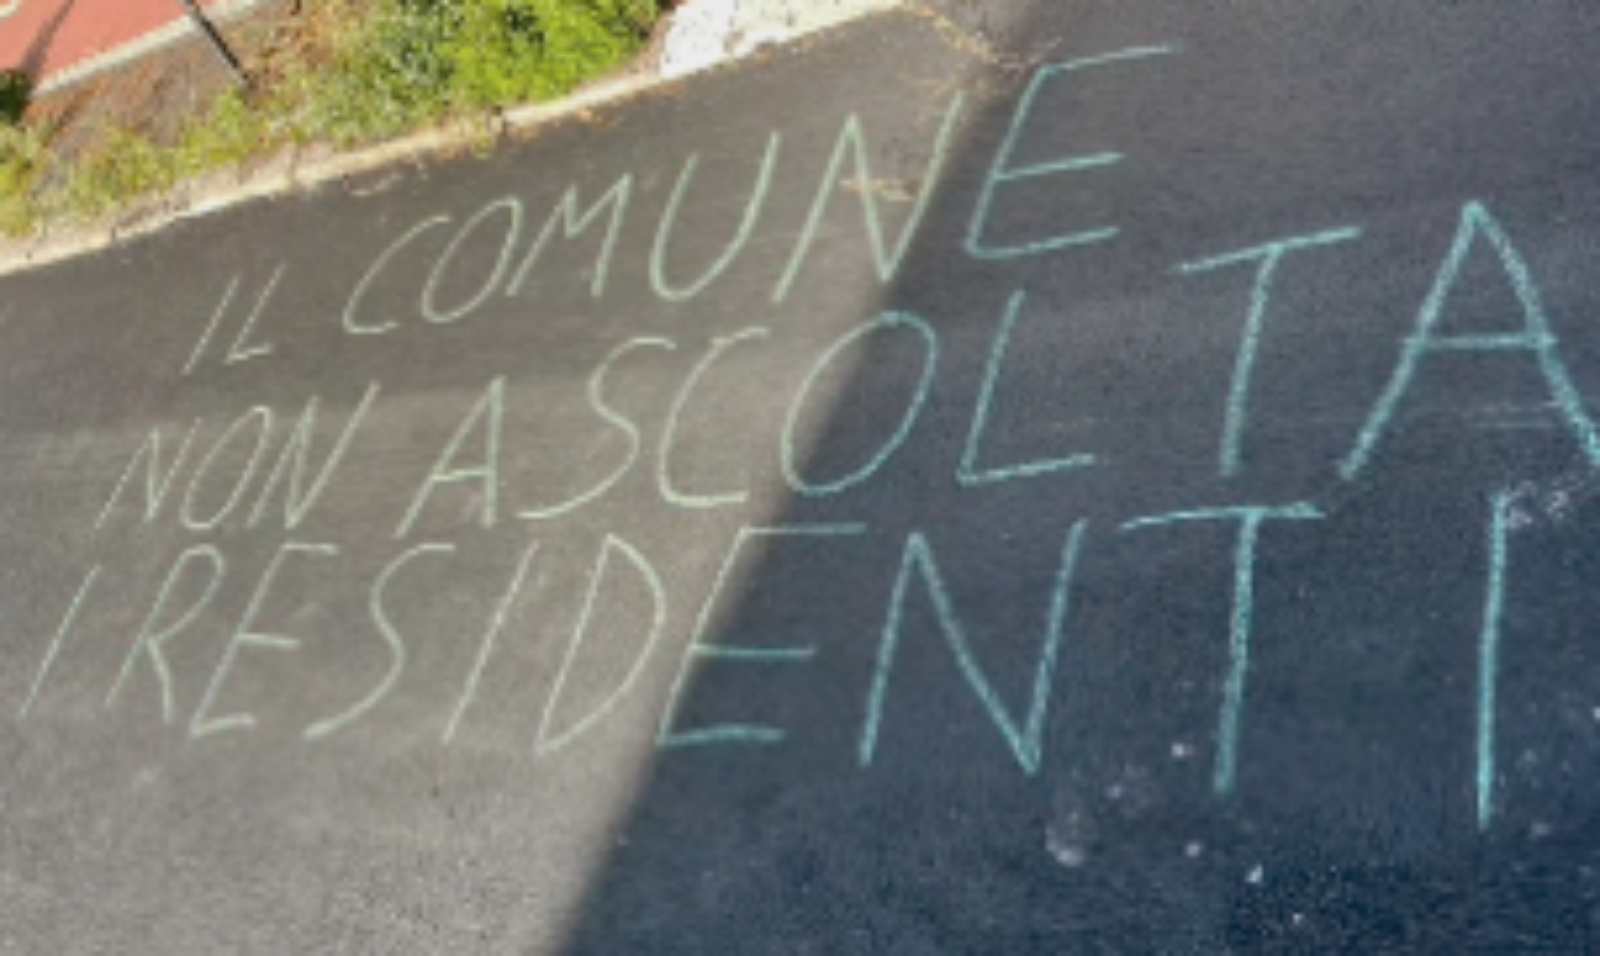 IL COMUNE
NON ASCOLTA
I RESIDENTI